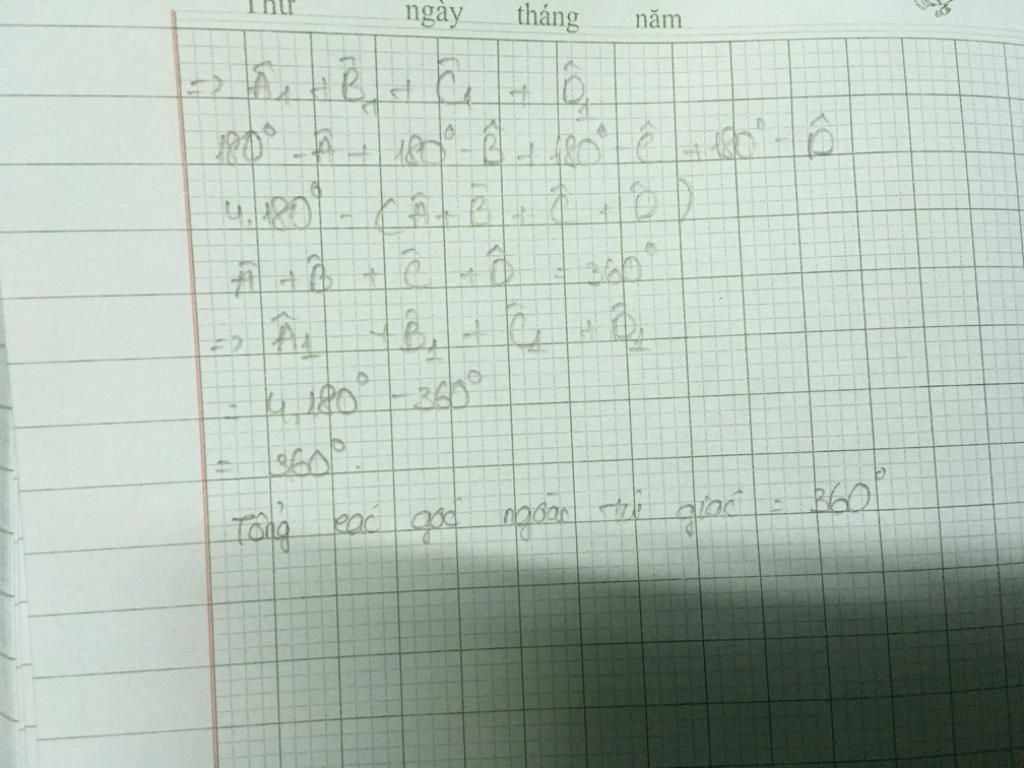 Thứ ngày tháng năm
=> Â₁ + B̂₁ + Ĉ₁ + D̂₁
180° - Â + 180° - B̂ + 180° - Ĉ + 180° - D̂
4.180° - (Â + B̂ + Ĉ + D̂)
Â + B̂ + Ĉ + D̂ = 360°
=> Â₁ + B̂₁ + Ĉ₁ + D̂₁
= 4.180° - 360°
= 360°.
Tổng các góc ngoài tứ giác = 360°